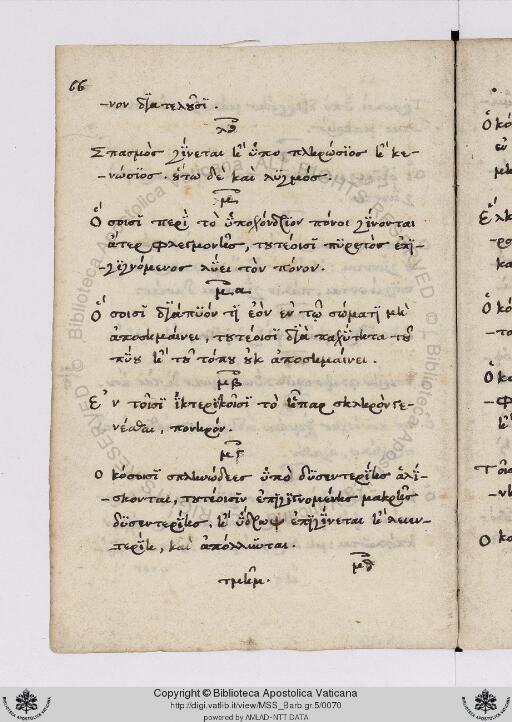 66
-νον διατελοῦσι.
λθ
Σπασμὸς γίνεται ἢ ὑπὸ πληρώσιος ἢ κε-
-νώσιος. οὕτω δὲ καὶ λυγμός.
μ
Ὁσοισι περὶ τὸ ὑποχόνδριον πόνοι γίνονται
ἄτερ φλεγμονῆς, τουτέοισι πυρετὸς ἐπι-
-γινόμενος λύει τὸν πόνον.
μα
Ὁσοισι διάπυόν τι ἐὸν ἐν τῷ σώματι μὴ
ἀποσημαίνει, τουτέοισι διὰ παχύτητα τοῦ
πύου ἢ τοῦ τόπου οὐκ ἀποσημαίνει.
μβ
Ἐν τοῖσι ἰκτερικοῖσι τὸ ἧπαρ σκληρὸν γε-
νέσθαι, πονηρόν.
μγ
Ὁκόσοισι σπληνώδεες ὑπὸ δυσεντερίης ἁλί-
-σκονται, τουτέοισιν ἐπιγινομένης μακρῆς
δυσεντερίης, ἢ ὕδρωψ ἐπιγίνεται ἢ λειεν-
τερίη, καὶ ἀπόλλωται.
μδ
Copyright © Biblioteca Apostolica Vaticana
http://digi.vatlib.it/view/MSS_Barb.gr.5/0070
powered by AMLAD-NTT DATA